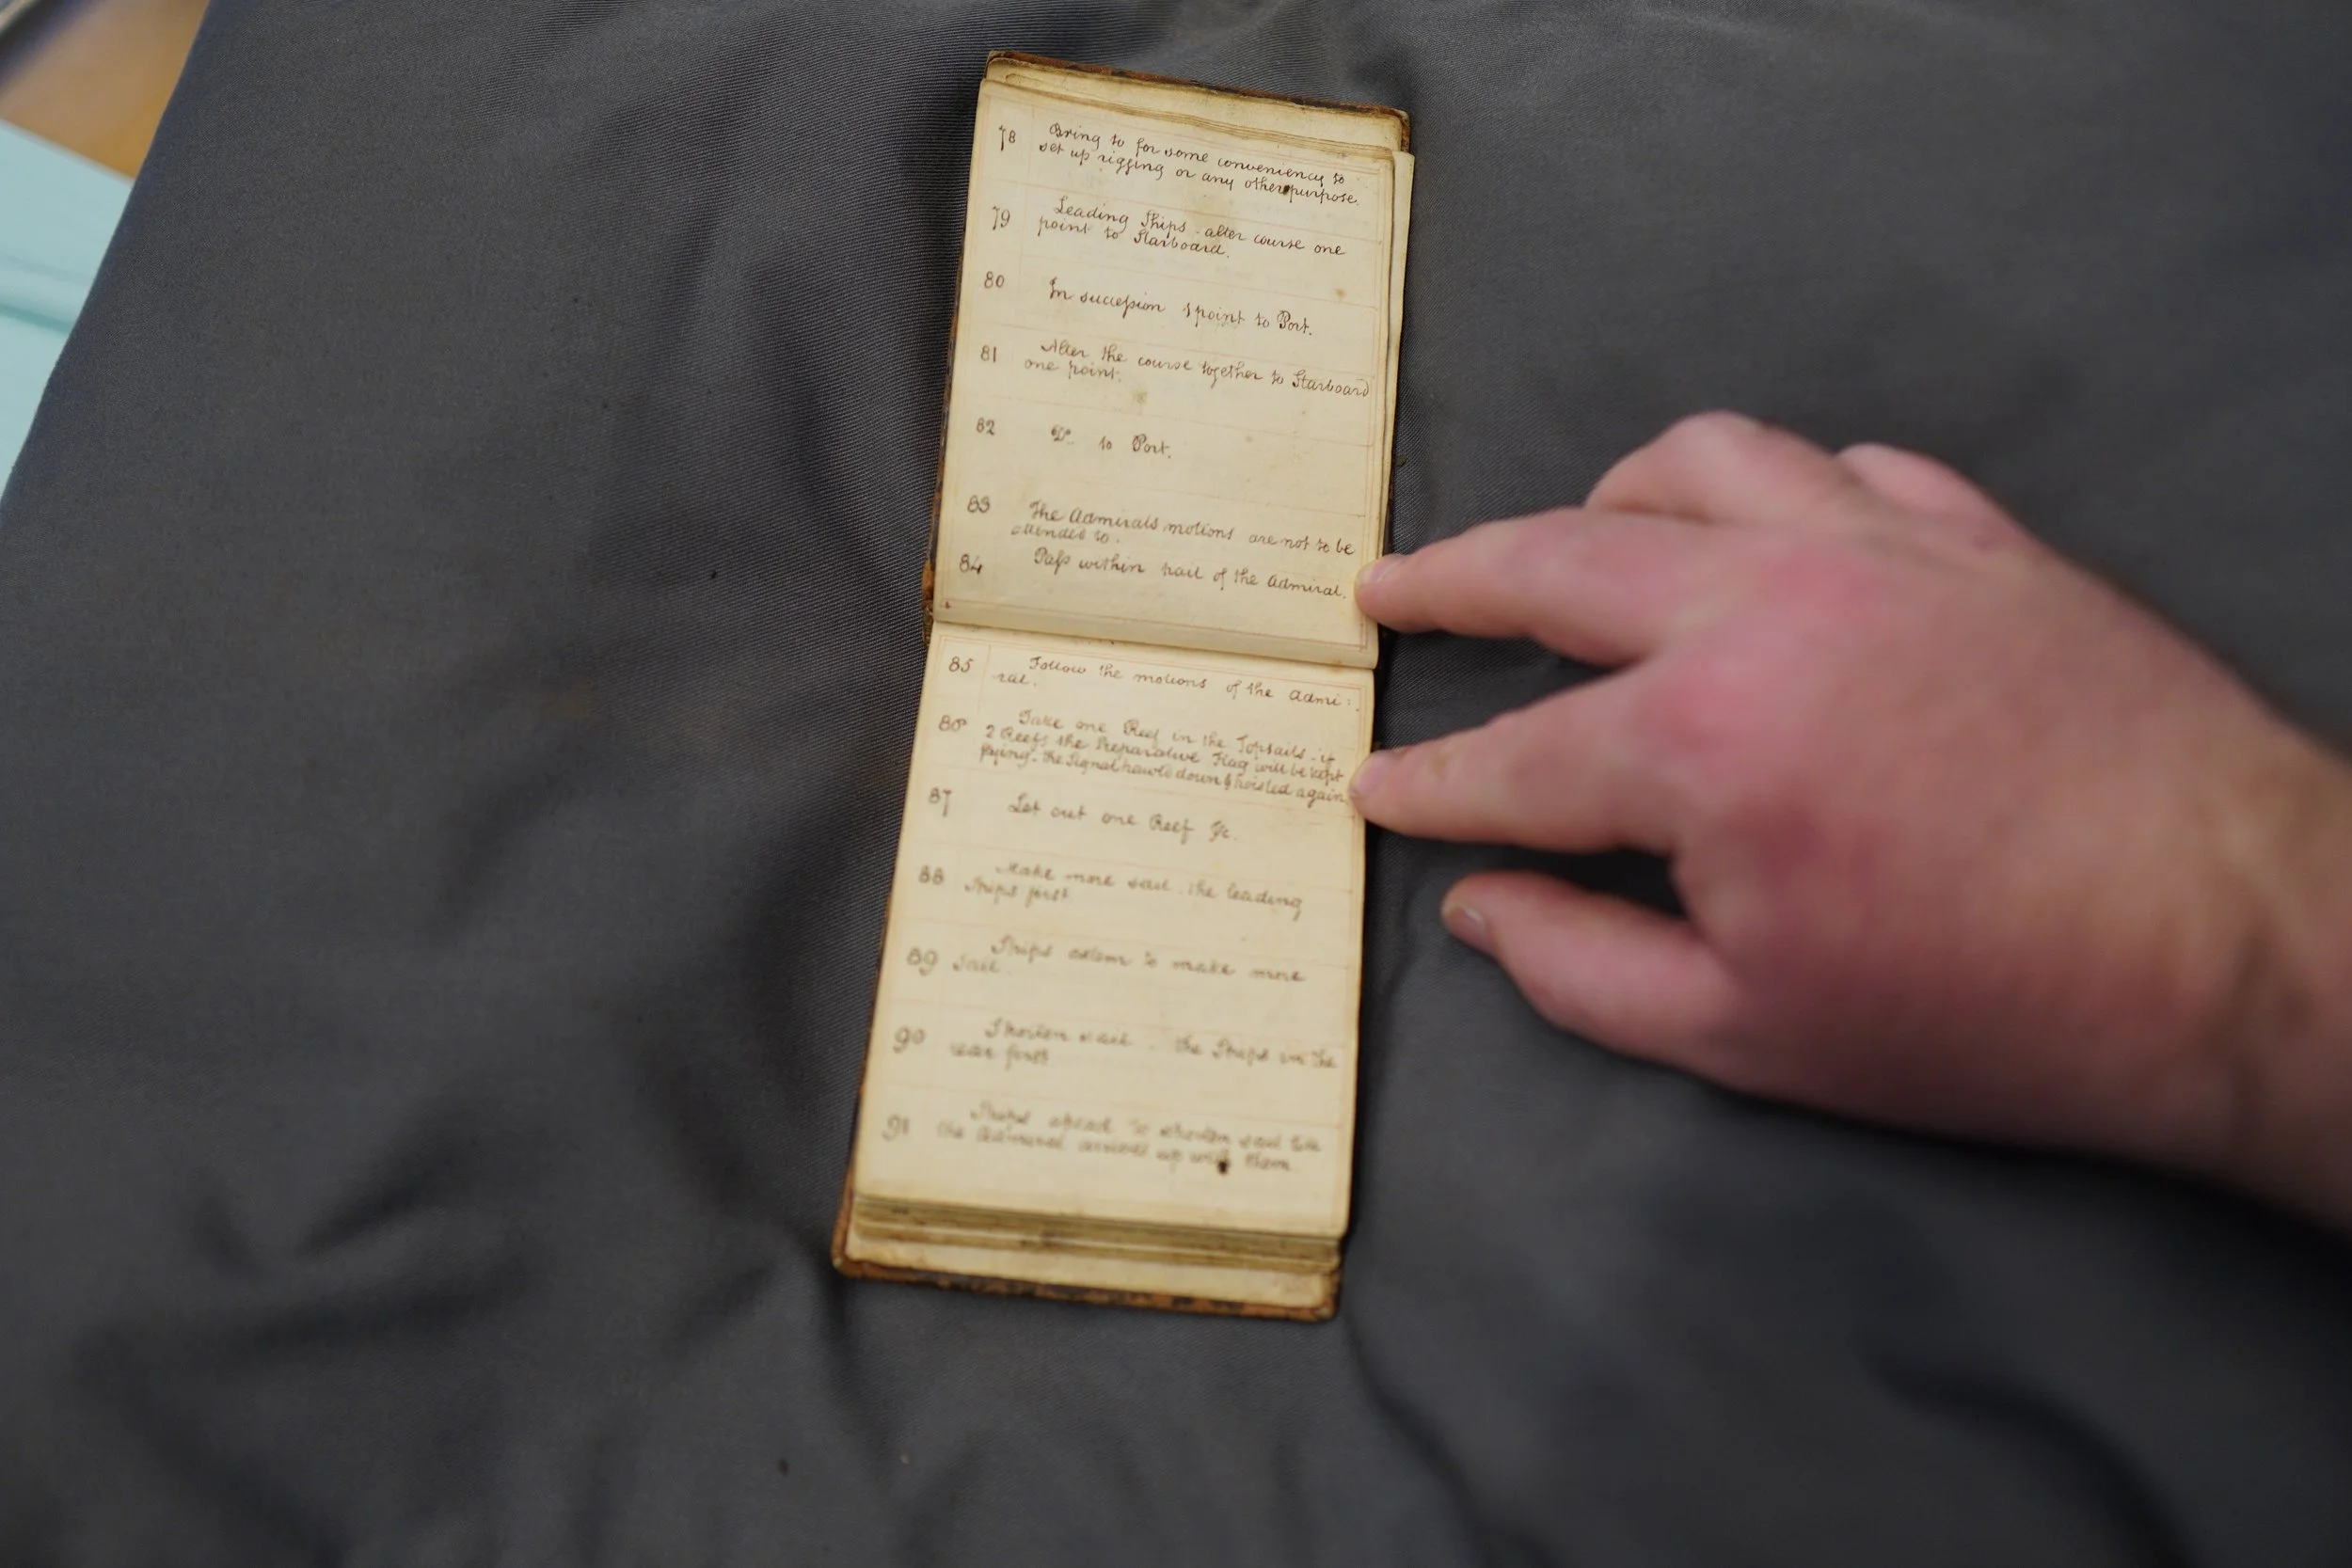 78 Bring to for some conveniency to
set up rigging or any other purpose.
79 Leading Ships alter course one
point to Starboard.
80 In succeſsion 1 point to Port.
81 Alter the course together to Starboard
one point.
82 Do. to Port.
83 The Admirals motions are not to be
attended to.
84 Paſs within hail of the Admiral.
85 Follow the motions of the Admi:
ral.
86 Take one Reef in the Topsails - if
2 Reefs the Preparative Flag will be kept
flying - the Signal hawl'd down & hoisted again
87 Let out one Reef &c.
88 Make more sail the leading
Ships first
89 Ships astern to make more
Sail.
90 Shorten sail - the Ships in the
rear first
91 Ships ahead to shorten sail till
the Admiral arrives up with them.